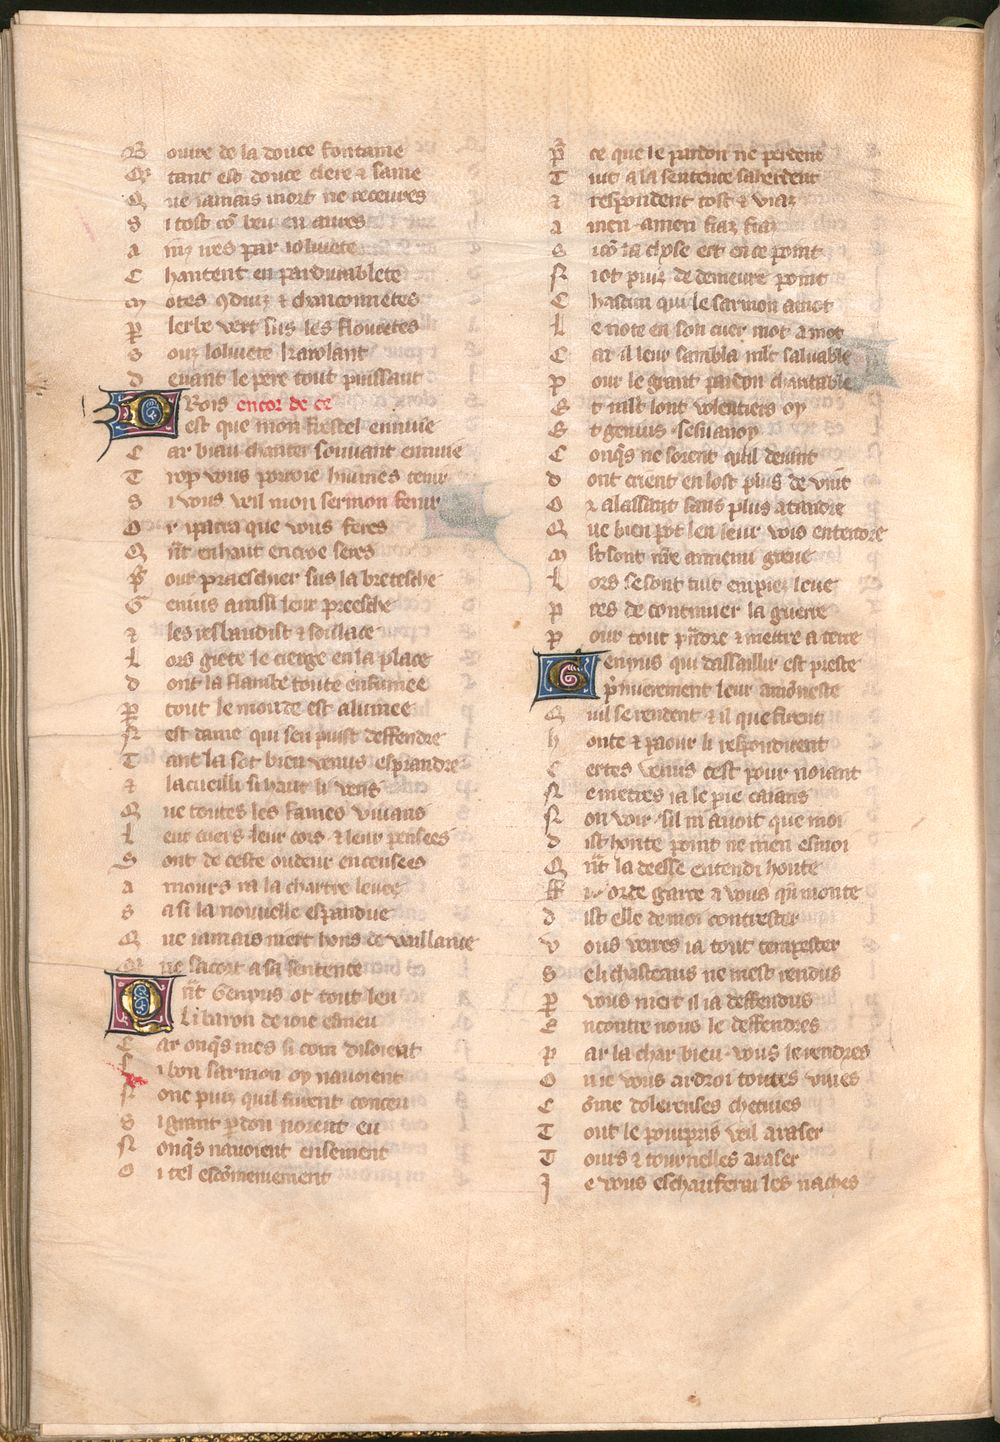 B ouire de la douce fontaine
Q tant est douce clere & saine
Q ue iamais mort ne receures
S i tost cō beu en aures
a inz ires par ioliuete
C hantent en pardurablete
M otes 9duiz & chanconnetes
P ler be vert sus les flouretes
S ouz loliuete karolant
D euant le pere tout puissant
D Rois encor de ce
est que mon frestel ennuie
C ar biau chanter souuant ennuie
T rop vous porroie huimes tenir
S i vous veil mon sermon fenir
O r iparra que vous feres
Q n̄t en haut encroe seres
P our praeschier sus la bretesche
G enius ainssi leur preesche
& les resbaudist & soullace
L ors giete le cierge en la place
D ont la flambe toute enfumee
P tout le monde est alumee
N est dame qui sen puist deffendre
T ant la sot bien venus esprandre
& la cueilli si haut li vens
Q ue toutes les fames viuans
L eur cuers leur cors & leur pensees
S ont de ceste oudeur encensees
a mours in la chartre leuee
S a si la nouuelle espandue
Q ue iamais niert hons de vaillance
Q ne sacort a sa sentence
Q n̄t Genyus ot tout leu
Li baron de ioie esmeu
C ar onq̄s mes si com disoient
S i bon sarmon oy nauoient
N onc puiz quil furent conceu
S i grant p̄don norent eu
N onq̄s nauoient ensement
O i tel escōmeniement
P ce que le pardon ne perdent
T uit a la sentence saherdent
& respondent tost & viaz
a men amen fiaz fiaz
S icō la chose est en ce point
N iot puiz de demeure point
C hascun qui le sarmon amot
L e note en son cuer mot a mot
C ar il leur sambla ml̄t saluable
P our le grant pardon charitable
E t ml̄t lont volentiers oy
E t genius sesuanoy
C onq̄s ne sorent quil deuint
D ont crient en lost plus de vint
O r alassaut sans plus atandre
Q ue bien pot len leur vois entendre
M lt sont n̄re annemi greue
L ors se sont tuit en piez leue
P res de continuer la guerre
P our tout p̄ndre & mettre a terre
G enyus qui dassaillir est preste
p̄mierement leur amōneste
Q uil se rendent & il que firent
h onte & paour li respondirent
C ertes venus cest pour noiant
N e metres ia le pie caians
N on voir sil ni auoit que moi
D ist honte point ne men esmoi
Q n̄t la deesse entendi honte
ff i orde garce a vous q̄ monte
D ist elle de moi contrester
V ous verres ia tout tempester
S e li chasteaus ne mest rendus
P vous niert il ia deffendus
E ncontre nous le deffendres
P ar la char bieu vous le rendres
O u ie vous ardroi toutes viues
C ōme dolereuses chetiues
T out le pourpris veil araser
T ours & tournelles araser
J e vous eschauferai les naches